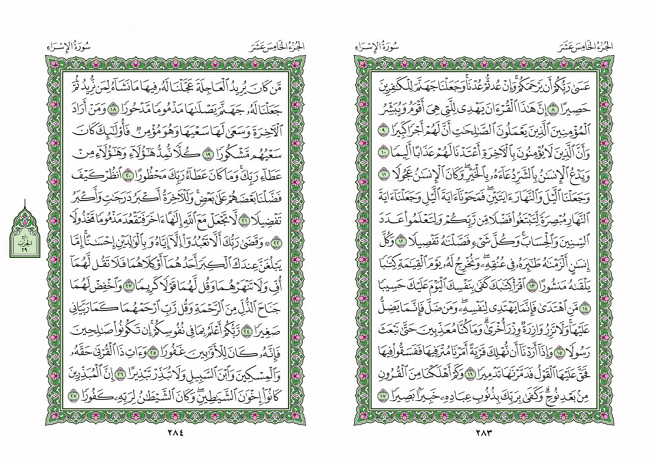 سُورَةُ الإِسْرَاءِ الجُزْءُ الخَامِسَ عَشَرَ
عَسَىٰ رَبُّكُمْ أَن يَرْحَمَكُمْ ۚ وَإِنْ عُدتُّمْ عُدْنَا ۘ وَجَعَلْنَا جَهَنَّمَ لِلْكَٰفِرِينَ
حَصِيرًا ٨ إِنَّ هَٰذَا ٱلْقُرْءَانَ يَهْدِى لِلَّتِى هِىَ أَقْوَمُ وَيُبَشِّرُ
ٱلْمُؤْمِنِينَ ٱلَّذِينَ يَعْمَلُونَ ٱلصَّٰلِحَٰتِ أَنَّ لَهُمْ أَجْرًا كَبِيرًا ٩
وَأَنَّ ٱلَّذِينَ لَا يُؤْمِنُونَ بِٱلْءَاخِرَةِ أَعْتَدْنَا لَهُمْ عَذَابًا أَلِيمًا ١٠
وَيَدْعُ ٱلْإِنسَٰنُ بِٱلشَّرِّ دُعَآءَهُۥ بِٱلْخَيْرِ ۖ وَكَانَ ٱلْإِنسَٰنُ عَجُولًا ١١
وَجَعَلْنَا ٱلَّيْلَ وَٱلنَّهَارَ ءَايَتَيْنِ ۖ فَمَحَوْنَآ ءَايَةَ ٱلَّيْلِ وَجَعَلْنَآ ءَايَةَ
ٱلنَّهَارِ مُبْصِرَةً لِّتَبْتَغُوا۟ فَضْلًا مِّن رَّبِّكُمْ وَلِتَعْلَمُوا۟ عَدَدَ
ٱلسِّنِينَ وَٱلْحِسَابَ ۚ وَكُلَّ شَىْءٍ فَصَّلْنَٰهُ تَفْصِيلًا ١٢ وَكُلَّ
إِنسَٰنٍ أَلْزَمْنَٰهُ طَٰٓئِرَهُۥ فِى عُنُقِهِۦ ۖ وَنُخْرِجُ لَهُۥ يَوْمَ ٱلْقِيَٰمَةِ كِتَٰبًا
يَلْقَىٰهُ مَنشُورًا ١٣ ٱقْرَأْ كِتَٰبَكَ كَفَىٰ بِنَفْسِكَ ٱلْيَوْمَ عَلَيْكَ حَسِيبًا
١٤ مَّنِ ٱهْتَدَىٰ فَإِنَّمَا يَهْتَدِى لِنَفْسِهِۦ ۖ وَمَن ضَلَّ فَإِنَّمَا يَضِلُّ
عَلَيْهَا ۚ وَلَا تَزِرُ وَازِرَةٌ وِزْرَ أُخْرَىٰ ۗ وَمَا كُنَّا مُعَذِّبِينَ حَتَّىٰ نَبْعَثَ
رَسُولًا ١٥ وَإِذَآ أَرَدْنَآ أَن نُّهْلِكَ قَرْيَةً أَمَرْنَا مُتْرَفِيهَا فَفَسَقُوا۟ فِيهَا
فَحَقَّ عَلَيْهَا ٱلْقَوْلُ فَدَمَّرْنَٰهَا تَدْمِيرًا ١٦ وَكَمْ أَهْلَكْنَا مِنَ ٱلْقُرُونِ
مِنۢ بَعْدِ نُوحٍ ۗ وَكَفَىٰ بِرَبِّكَ بِذُنُوبِ عِبَادِهِۦ خَبِيرًۢا بَصِيرًا ١٧
٢٨٣
سُورَةُ الإِسْرَاءِ الجُزْءُ الخَامِسَ عَشَرَ
مَّن كَانَ يُرِيدُ ٱلْعَاجِلَةَ عَجَّلْنَا لَهُۥ فِيهَا مَا نَشَآءُ لِمَن نُّرِيدُ ثُمَّ
جَعَلْنَا لَهُۥ جَهَنَّمَ يَصْلَىٰهَا مَذْمُومًا مَّدْحُورًا ١٨ وَمَنْ أَرَادَ
ٱلْءَاخِرَةَ وَسَعَىٰ لَهَا سَعْيَهَا وَهُوَ مُؤْمِنٌ فَأُو۟لَٰٓئِكَ كَانَ
سَعْيُهُم مَّشْكُورًا ١٩ كُلًّا نُّمِدُّ هَٰٓؤُلَآءِ وَهَٰٓؤُلَآءِ مِنْ
عَطَآءِ رَبِّكَ ۚ وَمَا كَانَ عَطَآءُ رَبِّكَ مَحْظُورًا ٢٠ ٱنظُرْ كَيْفَ
فَضَّلْنَا بَعْضَهُمْ عَلَىٰ بَعْضٍ ۚ وَلَلْءَاخِرَةُ أَكْبَرُ دَرَجَٰتٍ وَأَكْبَرُ
تَفْضِيلًا ٢١ لَّا تَجْعَلْ مَعَ ٱللَّهِ إِلَٰهًا ءَاخَرَ فَتَقْعُدَ مَذْمُومًا مَّخْذُولًا
٢٢ وَقَضَىٰ رَبُّكَ أَلَّا تَعْبُدُوٓا۟ إِلَّآ إِيَّاهُ وَبِٱلْوَٰلِدَيْنِ إِحْسَٰنًا ۚ إِمَّا
يَبْلُغَنَّ عِندَكَ ٱلْكِبَرَ أَحَدُهُمَآ أَوْ كِلَاهُمَا فَلَا تَقُل لَّهُمَآ
أُفٍّ وَلَا تَنْهَرْهُمَا وَقُل لَّهُمَا قَوْلًا كَرِيمًا ٢٣ وَٱخْفِضْ لَهُمَا
جَنَاحَ ٱلذُّلِّ مِنَ ٱلرَّحْمَةِ وَقُل رَّبِّ ٱرْحَمْهُمَا كَمَا رَبَّيَانِى
صَغِيرًا ٢٤ رَّبُّكُمْ أَعْلَمُ بِمَا فِى نُفُوسِكُمْ ۚ إِن تَكُونُوا۟ صَٰلِحِينَ
فَإِنَّهُۥ كَانَ لِلْأَوَّٰبِينَ غَفُورًا ٢٥ وَءَاتِ ذَا ٱلْقُرْبَىٰ حَقَّهُۥ
وَٱلْمِسْكِينَ وَٱبْنَ ٱلسَّبِيلِ وَلَا تُبَذِّرْ تَبْذِيرًا ٢٦ إِنَّ ٱلْمُبَذِّرِينَ
كَانُوٓا۟ إِخْوَٰنَ ٱلشَّيَٰطِينِ ۖ وَكَانَ ٱلشَّيْطَٰنُ لِرَبِّهِۦ كَفُورًا ٢٧
٢٨٤
الحزب
٢٩